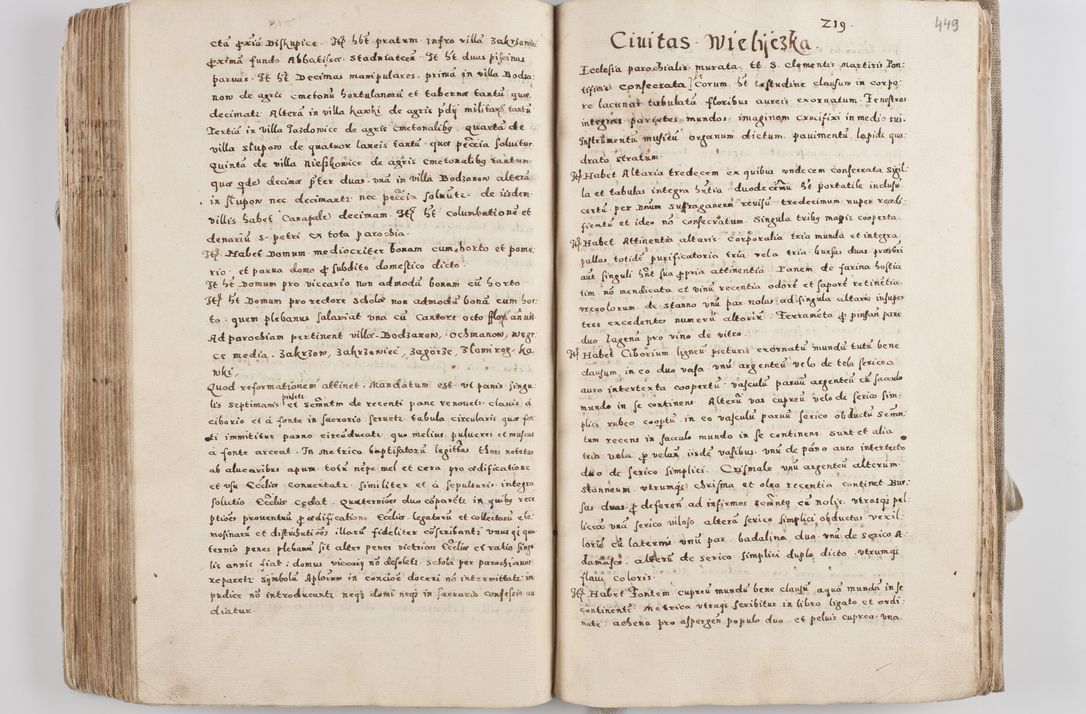 ctā ꝓxiā Diskupice. Itē hēt pratum infro villā Zakrzowie
ꝓximā fundo Abbatissæ Stadniateen. It hēt duas piscinas
paruas. It hēt Decimas manipulares. primā in villa Bodza:
now de agris cmetonū hortulanorū et tabernæ tantū quæ
decimat: Alterā in villa Kawki de agris militaris tantū
Tertiā in villa Jazdowice de agris cmetonalibꝰ. quartā de
villa Slupow de quatuor laneis tantū. quæ pēccia soluitur.
Quintā de villa Niesskowice de agris cmetonalibꝰ tantum.
quæ qde decimæ ꝑter duas. vnā in villa Bodzanow alterā
in Slupow nec decimant: nec pēccia soluūt. de iisdem
villis habet Canapale decimam. Itē hēt columbatione et
denariū S. petri ex tota parochia.
Itē Habet Domum mediocriter bonam cum horto et pome:
rio. et parua domo ꝓ subdito domestico dicto.
It hēt Domum pro viccario non admodū bonam cū horto
Itē hēt Domum pro rectore scholæ non admodū bonā cum hor:
to. quem plebanus salariat vna cū Cantore octo flor annuis
Ad parochiam pertinent villæ. Bodzanow, Ochmanow, Wegr
ce media. Zakrzow, Zakrzowiec, Zagorze, Slamirog. Ka
wki.
Quod reformationem attinet. Mandatum est. vt panis singu:
lis septimanis et Semētm de recenti pane renouetr. clauis à
ciborio et à fonte in sacrario seruetr. tabula circularis quæ fon
ti immititur panno circūducatr. quo melius pulueres et muscas
à fonte arceat. In metrica baptisatorū legittī thori notetur
ab alucaribus apum totū nēpe mel et cera pro ædificatione
et vsu Ecclīæ conuertatr. similiter et à sepulturis integra
solutio Ecclīæ cedat. Quaterniões duo cōparētr. in quibꝰ rece
ptiões prouentuū ꝓ ædificatione Ecclīæ. legatorū et collectarū ele:
mosinarū et distributiōes illarū fideliter cōscribantr. vnus qi qua
ternio penes plebanū sit alter penes victricos Ecclīæ et ratio singu
lis annis fiat: domus viccarij nō desoletr. schola per parochianos
reparetr. symbolū Aplorum in concioē doceri nō intermittatr. im
pudicæ nō introducantr. neqꝫ domi neqꝫ in sacrario confessio au
diatur.
219.
449
Ciuitas Wielyczka.
Ecclesia parochialis. murata. tt. S. Clementis Martiris Pon:
tificis. consecrata. Corum hēt testudine clausum in corpo:
re lacunar tabulatū floribus aureis exornatum. Fenestras
integras parietes mundos: imaginem crucifixi in medio sui.
Instrumentū musicū organum dictum. pauimentū lapide qua
drato stratum.
Itē Habet Altaria tredecem ex quibus vndecem consecrata sigil:
la et tabulas integra hntia duodecimū hēt portatile inclusū
certū per Dnum Suffraganeum reuisū. tredecimum nuper reædi
ficatū et ideo nō consecratum. Singula tribꝰ mapis cooperta.
Itē Habet Attinentia altaris Corporalia tria munda et integra
pallas totidē purificatoria tria vela tria. bursas duas. præteri
aut singuli hnt sua ꝓpria attinentia. Panem de farina hostia
tim nō mendicata et vinū recentia odore et sapore retinētia.
vrceolorum de stanno vnū par nolas ad singula altaria insuper
tres excedentes numerū altariū. Ferrameta ꝓ pinsan pane
duo. lagena pro vino de vitro.
Itē Habet Ciborium ligneū picturis exornatū mundū tutū bene
clausum, in eo duo vasa. vnū argenteū velo de tela sericea
auro intertexta coopertū. vasculū paruū argenteū cū sacculo
mundo in se continens. Alterū vas cupreū velo de serico sim:
plici rubeo cooptū in eo vasculū paruū serico obductū Semēn:
tum recens in sacculo mundo in se continens. Sunt et alia
tria vela ꝓ veland iisdē vasibus. vnū de pāno auro intertexto
duo de serico simplici. Crismale vnū argenteū alterum
stanneum. vtrumqꝫ chrisma et olea recentia continet. Bur
sas duas ꝓ deferen ad infirmos semētō cū nolis. vtrasqꝫ pel
liceas vnā serico viloso alterā serico simplici obductas vexil:
lorū cū laternis vnū par. badalina duo. vnū de serico
Damasco. alterū de serico simplici duplo dicto. vtrumqꝫ
flaui coloris.
Itē Habet Fontem cupreū mundū bene clausū, aquā mundā in se
continente. Metrica vtraqꝫ scribitur in libro ligato et ordi:
nate: achena pro aspergen populo duo. et peluis cuprea. vna